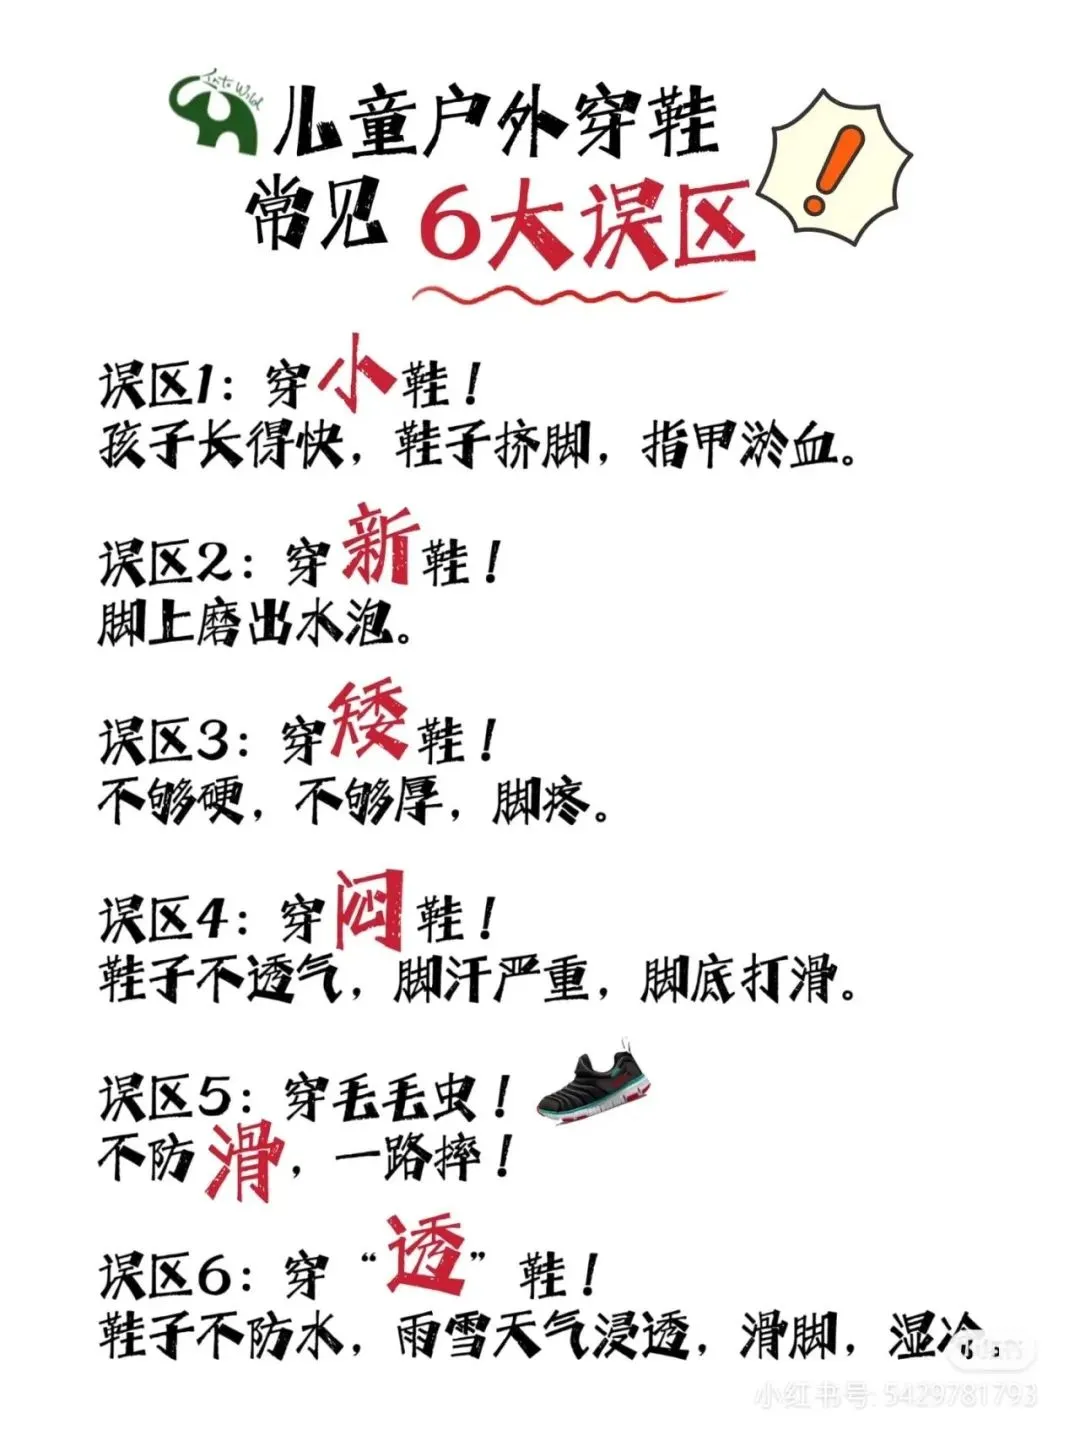 Into Wild
儿童户外穿鞋
常见 6大误区
误区1：穿小鞋！
孩子长得快，鞋子挤脚，指甲淤血。
误区2：穿新鞋！
脚上磨出水泡。
误区3：穿矮鞋！
不够硬，不够厚，脚疼。
误区4：穿闷鞋！
鞋子不透气，脚汗严重，脚底打滑。
误区5：穿毛毛虫！
不防滑，一路摔！
误区6：穿“透”鞋！
鞋子不防水，雨雪天气浸透，滑脚，湿冷。
小红书
小红书号: 5429781793